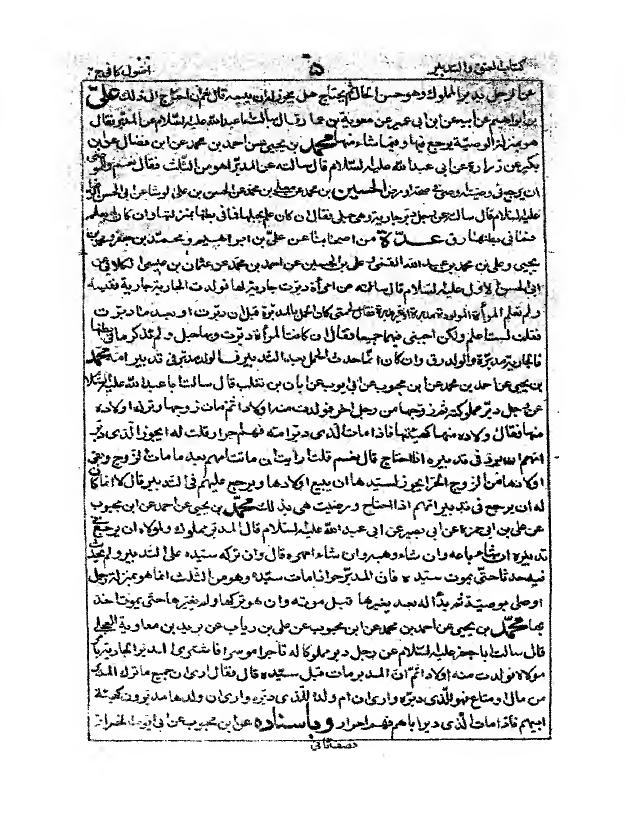 كتاب العتق والتدبير ۵
عن الرجل يدبر المملوك وهو حسن الحال ثم يحتاج هل يجوز له ان يبيعه قال نعم ان احتاج الى ذلك على
بن ابراهيم عن ابيه عن ابن ابى عمير عن معوية بن عمار قال سألت ابا عبد الله عليه السلام عن المدبر فقال
هو بمنزلة الوصية يرجع فيها وفيما شاء منها محمد بن يحيى عن احمد بن محمد عن ابن فضال عن ابن
بكير عن زرارة عن ابى عبد الله عليه السلام قال سالته عن المدبر اهو من الثلث فقال نعم وللموصى
ان يرجع فى وصيته اوصى فى صحة او مرض الحسين بن محمد عن معلى بن محمد عن الحسن بن على الوشا عن ابى الحسن الرضا
عليه السلام قال سالته عن رجل دبر جارية وهى حبلى فقال ان كان علم بحبلها فما فى بطنها بمنزلتها وان كان لم يعلم
فما فى بطنها رق عدة من اصحابنا عن على بن ابراهيم ومحمد بن جعفر ومحمد بن
يحيى وعلى بن محمد بن عبد الله القمى و على بن الحسين عن احمد بن محمد عن عثمان بن عيسى الكلابى عن
ابى الحسن الاول عليه السلام قال سالته عن امرأة دبرت جارية لها فولدت الجارية جارية نفيسة
ولم تعلم المرأة المولودة مدبرة او غير مدبرة فقال لى متى كان الحمل بالمدبرة قبل ان دبرت او بعد ما دبرت
فقلت لست اعلم ولكن اجبنى فيهما جميعا فقال ان كانت المرأة دبرت وبها حبل ولم تذكر ما فى بطنها
فالجارية مدبرة والولد رق وان كان انما حدث الحمل بعد التدبير فالولد مدبر فى تدبير امه محمد
بن يحيى عن احمد بن محمد عن ابن محبوب عن ابى ايوب عن ابان بن تغلب قال سالت ابا عبد الله عليه السلام
عن رجل دبر مملوكته ثم زوجها من رجل اخر فولدت منه اولادا ثم مات زوجها وترك اولاده
منها فقال اولاده منها كهيئتها فاذا مات الذى دبر امه فهم احرار قلت له ايجوز للذى دبر
امهم ان يرد فى تدبيره اذا احتاج قال نعم قلت ارايت ان ماتت امهم بعد ما مات الزوج وبقى
اولادها من الزوج الحر ايجوز لسيدها ان يبيع اولادها ويرجع عليهم فى التدبير قال لا انما كان
له ان يرجع فى تدبير امهم اذا احتاج ورضيت هى بذلك محمد بن يحيى عن احمد عن ابن محبوب
عن على بن ابى حمزة عن ابى بصير عن ابى عبد الله عليه السلام قال المدبر مملوك ولمولاه ان يرجع فى
تدبيره ان شاء باعه وان شاء وهبه وان شاء امهره قال وان تركه سيده على التدبير ولم يحدث
فيه حدثا حتى يموت سيده فان المدبر حر اذا مات سيده وهو من الثلث انما هو بمنزلة رجل
اوصى بوصية ثم بدا له بعد فغيرها قبل موته وان هو تركها ولم يغيرها حتى يموت اخذ
بها محمد بن يحيى عن احمد بن محمد عن ابن محبوب عن على بن رياب عن بريد بن معاوية العجلى
قال سالت ابا جعفر عليه السلام عن رجل دبر مملوكا له تاجرا موسرا فاشترى المدبر جارية بامر
مولاه فولدت منه اولادا ثم ان المدبر مات قبل سيده قال فقال ارى ان جميع ما ترك المدبر
من مال او متاع فهو للذى دبره وارى ان ام ولده للذى دبره وارى ان ولدها مدبرون كهيئة
ابيهم فاذا مات الذى دبر اباهم فهم احرار وباسناده عن ابن محبوب عن ابى ايوب الخزاز